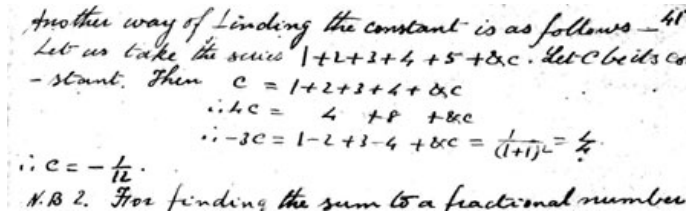 Another way of finding the constant is as follows — 41
Let us take the series 1+2+3+4+5+&c. Let C be its co
-stant. Then C = 1+2+3+4+&c
∴ 4C = 4 +8 +&c
∴ -3C = 1-2+3-4+&c = 1/(1+1)² = 1/4
∴ C = -1/12.
N.B 2. For finding the sum to a fractional number